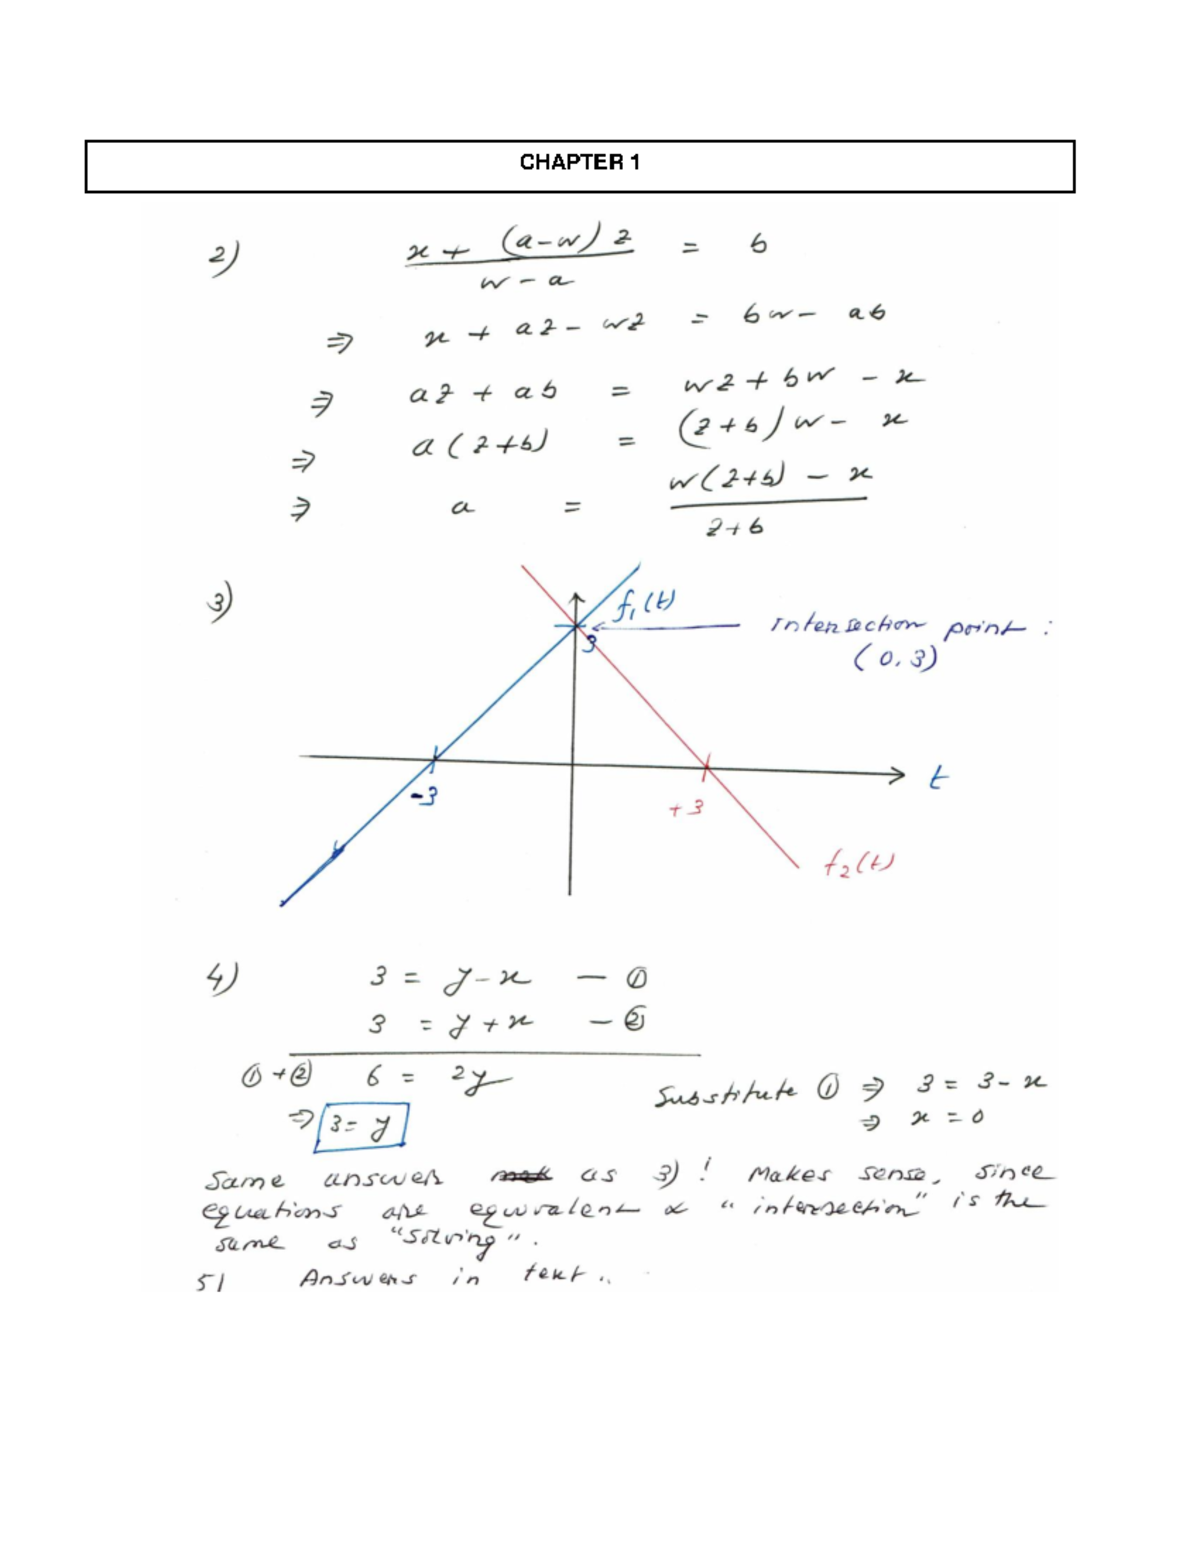 CHAPTER 1
2) x + (a-w) z = b
w - a
⇒ x + az - wz = bw - ab
⇒ az + ab = wz + bw - x
⇒ a (z+b) = (z+b) w - x
⇒ a = w(z+b) - x
z+b
3)
f₁(t)
3
intersection point :
(0, 3)
-3
+3
t
f₂(t)
4) 3 = y - x — ①
3 = y + x — ②
① + ② 6 = 2y
Substitute ① ⇒ 3 = 3 - x
⇒ 3 = y
⇒ x = 0
Same answer as 3) ! Makes sense, since
equations are equivalent & "intersection" is the
same as "solving".
5) Answers in text..